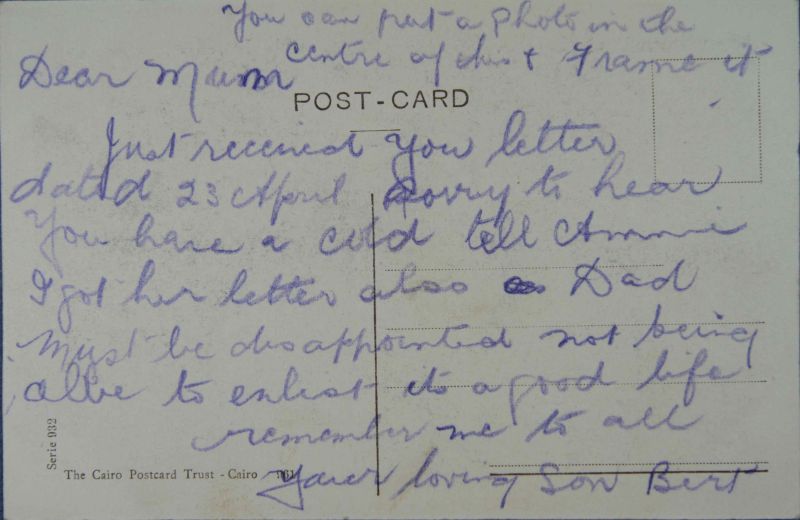 You can put a photo in the
centre of this & Frame it
Dear Mum
POST-CARD
Just received you letter
dated 23 April Sorry to hear
You have a cold tell Annie
I got her letter also Dad
Must be disappointed not being
able to enlist its a good life
remember me to all
Your loving Son Bert
Serie 932
The Cairo Postcard Trust - Cairo